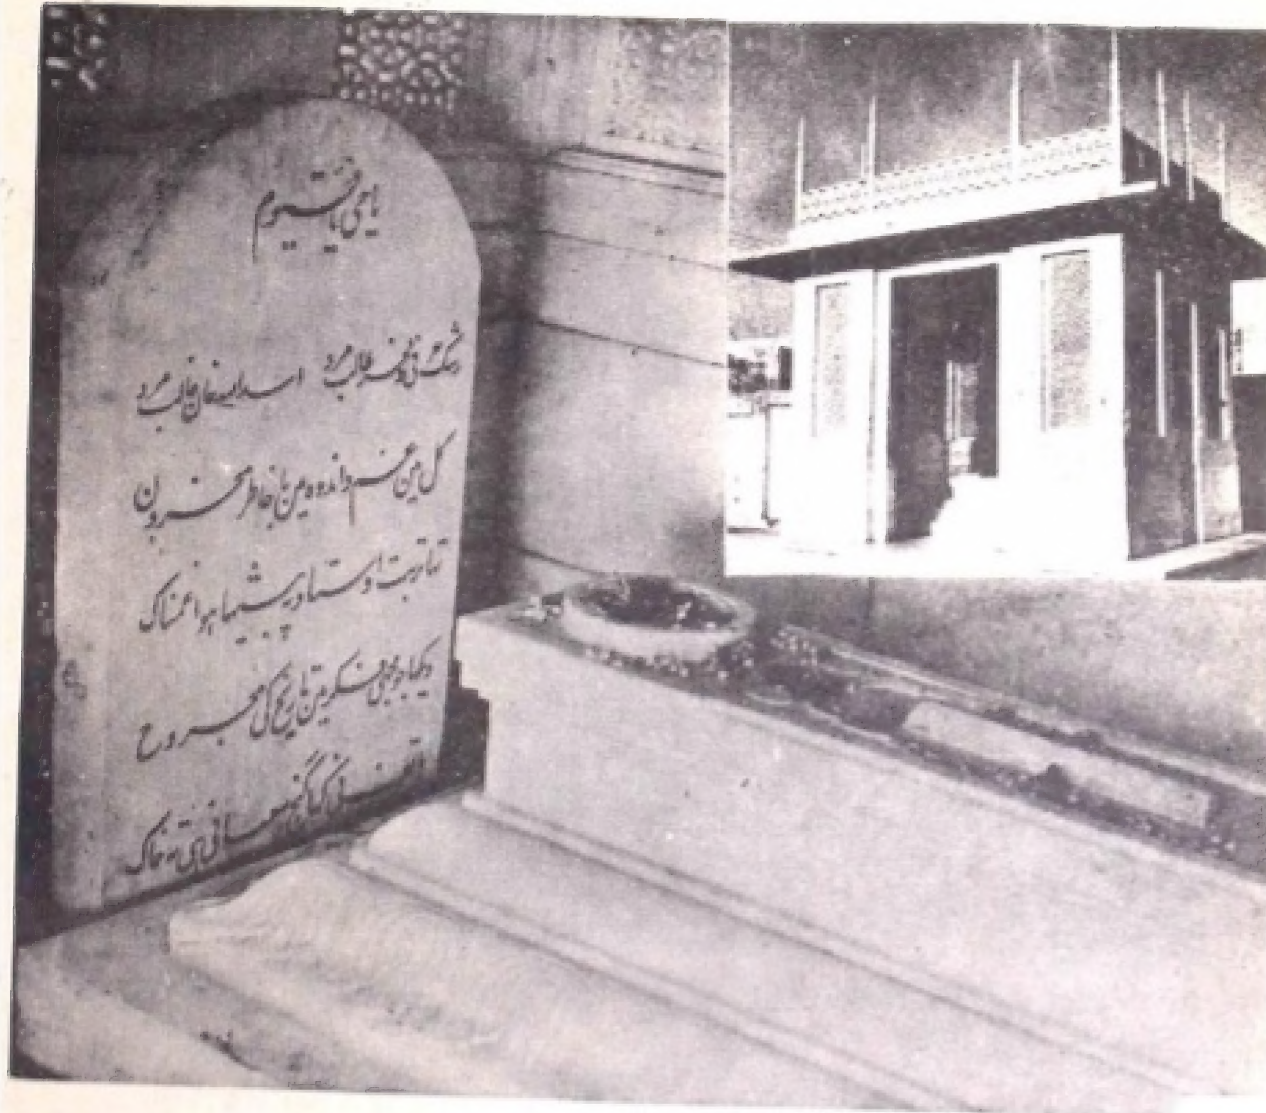 یا حی یا قیوم
رشک عرفی و فخر طالب مرد اسد اللہ خان غالب مرد
کل مین غم و اندوہ مین با خاطر محزون
تہا تربت استاد پہ بیٹہا ہوا غمناک
دیکہا جو مجہی فکر مین تاریخ کی مجروح
ہاتف نی کہا گنج معانی ہی تہ خاک